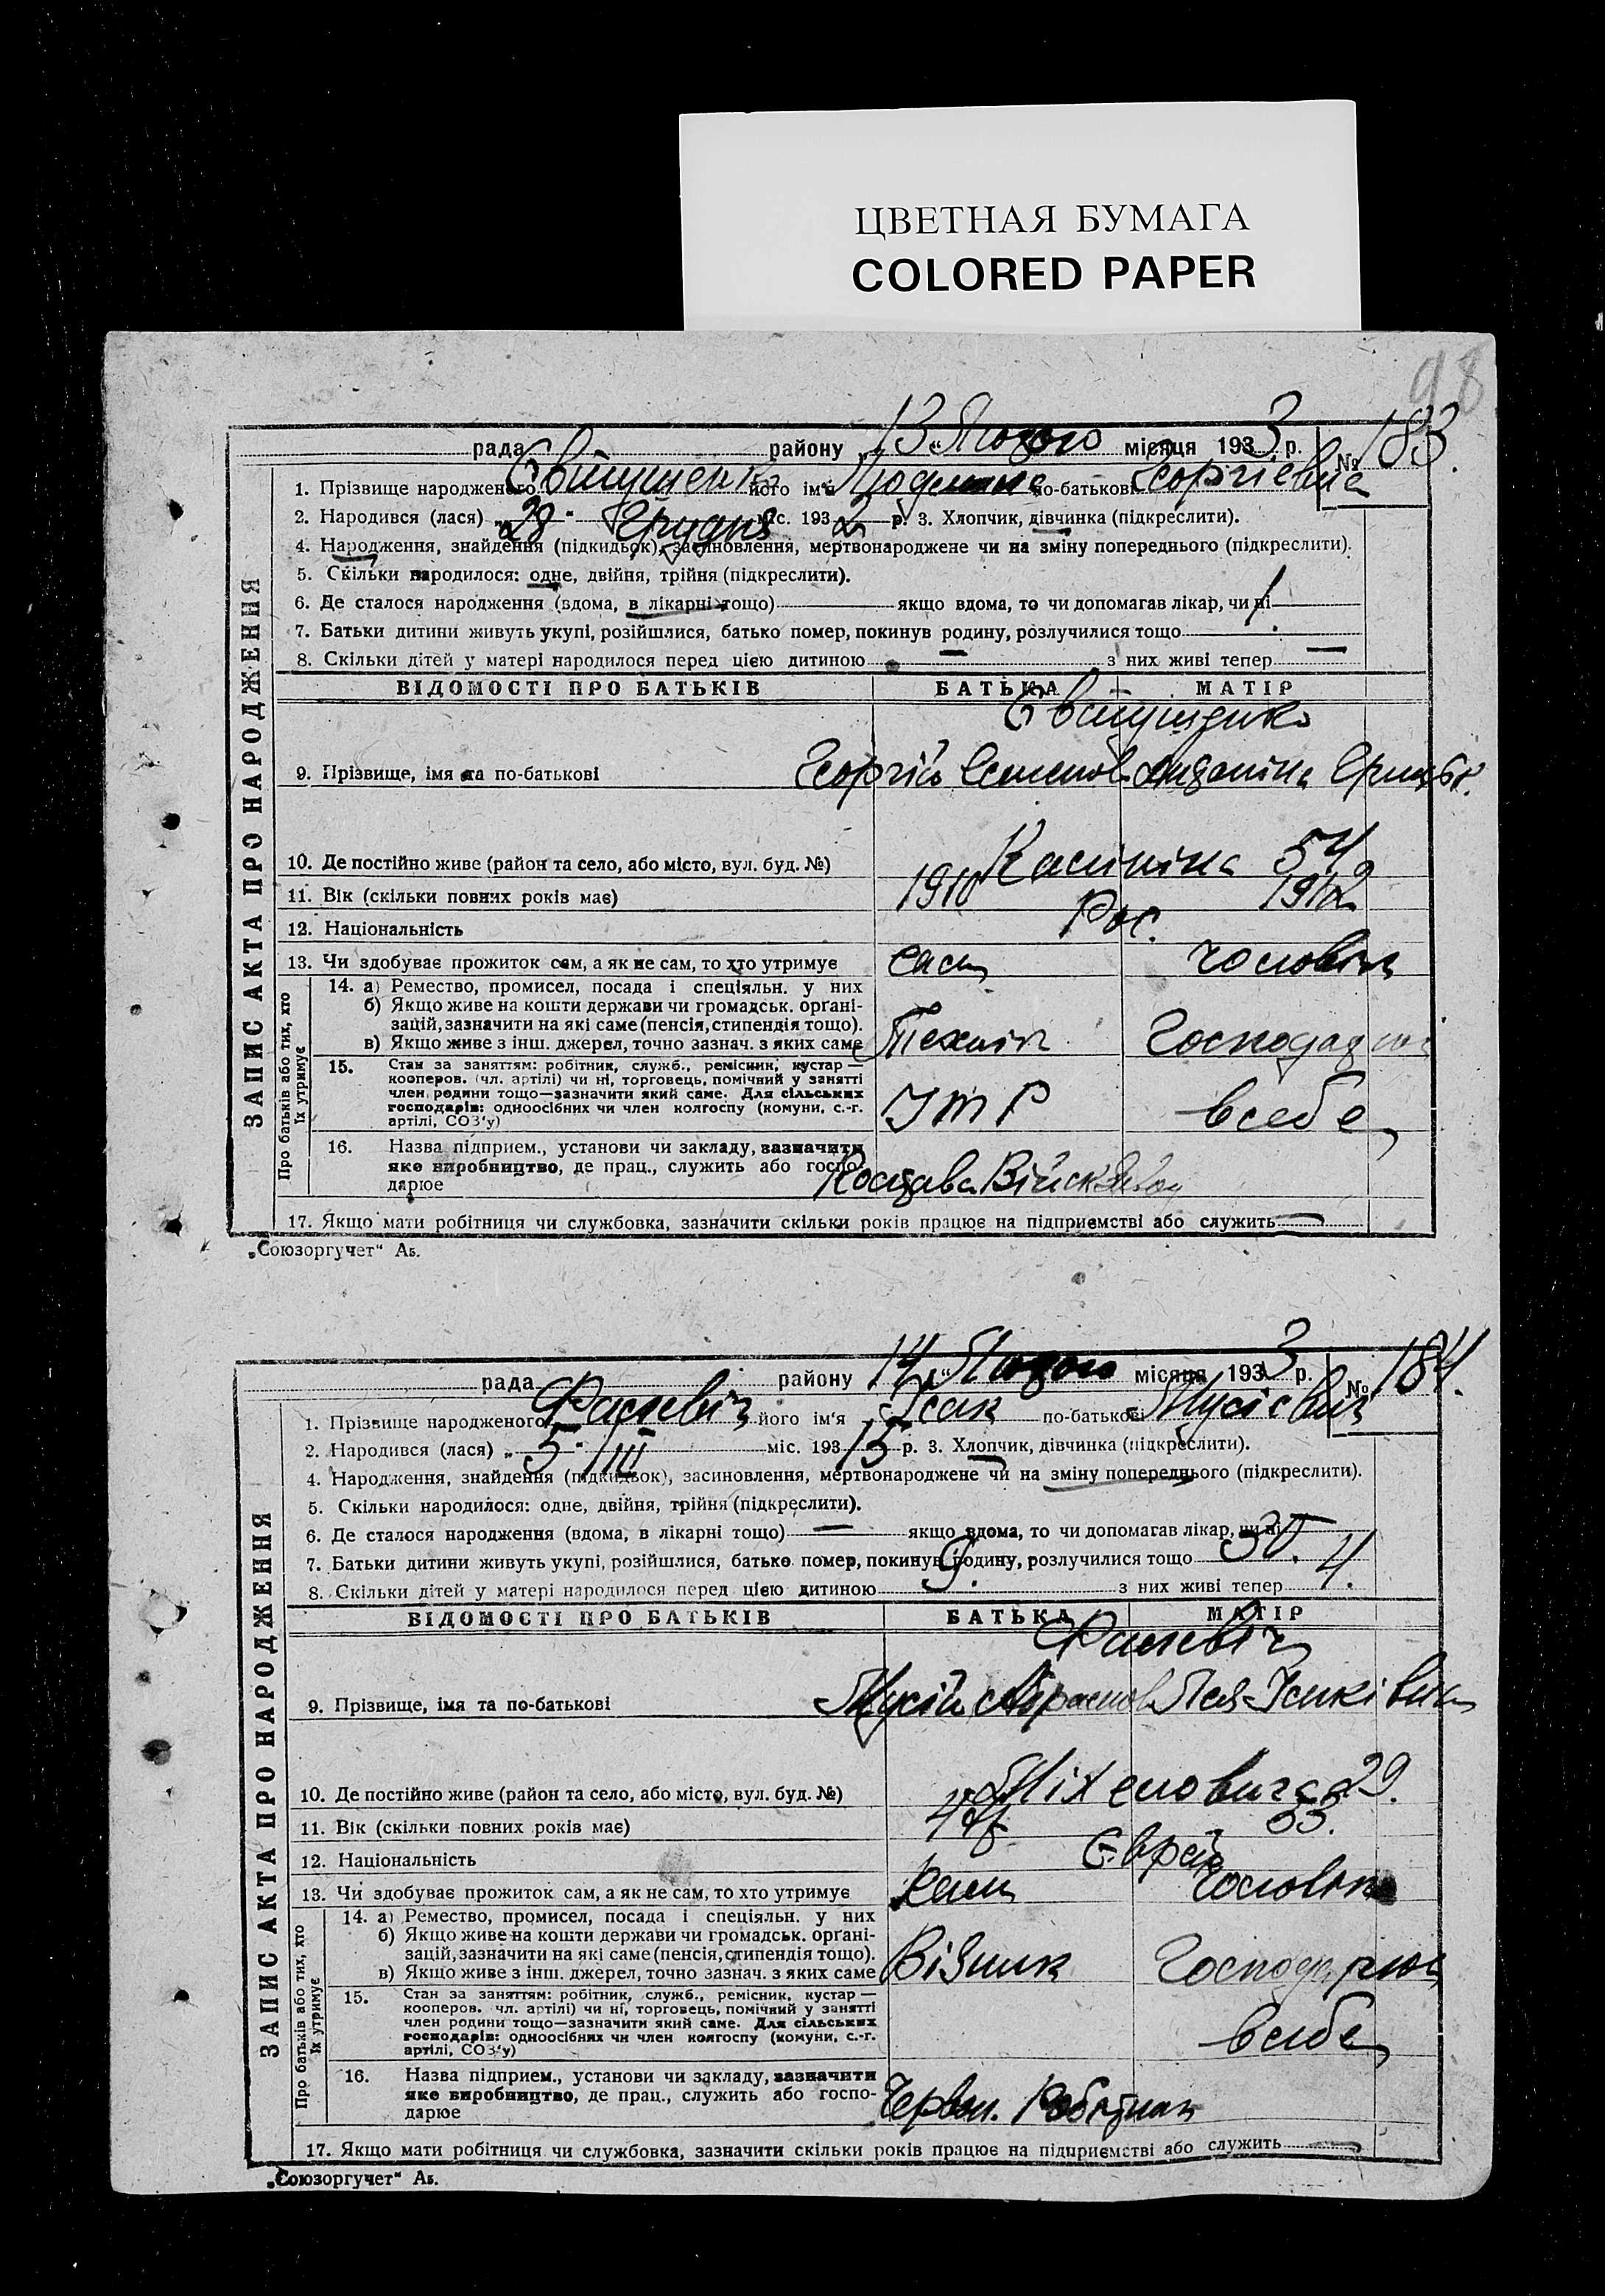 ЦВЕТНАЯ БУМАГА
COLORED PAPER
98
рада району 13 „Лютого місяця 1933 р. № 183.
1. Прізвище народженого його ім'я по-батькові Георгіевна
2. Народився (лася) „28" Грудня міс. 1932 р. 3. Хлопчик, дівчинка (підкреслити).
4. Народження, знайдення (підкидьок), засиновлення, мертвонароджене чи на зміну попереднього (підкреслити).
5. Скільки народилося: одне, двійня, трійня (підкреслити).
6. Де сталося народження (вдома, в лікарні тощо) якщо вдома, то чи допомагав лікар, чи ні
7. Батьки дитини живуть укупі, розійшлися, батько помер, покинув родину, розлучилися тощо
8. Скільки дітей у матері народилося перед цією дитиною — з них живі тепер —
ЗАПИС АКТА ПРО НАРОДЖЕННЯ
ВІДОМОСТІ ПРО БАТЬКІВ БАТЬКА МАТІР
9. Прізвище, імя та по-батькові Георгій Семенов.
10. Де постійно живе (район та село, або місто, вул. буд. №) Калініна 54
11. Вік (скільки повних років має) 1910 1912
12. Національність Рос.
13. Чи здобуває прожиток сам, а як не сам, то хто утримує сам чоловік
Про батьків або тих, хто їх утримує
14. а) Ремество, промисел, посада і спеціяльн. у них
б) Якщо живе на кошти держави чи громадськ. органі-
зацій, зазначити на які саме (пенсія, стипендія тощо).
в) Якщо живе з інш. джерел, точно зазнач. з яких саме Технік
15. Стан за заняттям: робітник, служб., ремісник, кустар —
кооперов. (чл. артілі) чи ні, торговець, помічний у занятті
член родини тощо—зазначити який саме. Для сільських
господарів: одноосібних чи член колгоспу (комуни, с.-г.
артілі, СОЗ'у) ІТР в себе
16. Назва підприєм., установи чи закладу, зазначити
яке виробництво, де прац., служить або госпо-
дарює
17. Якщо мати робітниця чи службовка, зазначити скільки років працює на підприємстві або служить —
„Союзоргучет" Аб.
рада району 14 „Лютого місяця 1933 р. № 184.
1. Прізвище народженого його ім'я Ісак по-батькові Мусієвич
2. Народився (лася) „5" III міс. 19315 р. 3. Хлопчик, дівчинка (підкреслити).
4. Народження, знайдення (підкидьок), засиновлення, мертвонароджене чи на зміну попереднього (підкреслити).
5. Скільки народилося: одне, двійня, трійня (підкреслити).
6. Де сталося народження (вдома, в лікарні тощо) — якщо вдома, то чи допомагав лікар, чи ні —
7. Батьки дитини живуть укупі, розійшлися, батько помер, покинув родину, розлучилися тощо 30.
8. Скільки дітей у матері народилося перед цією дитиною 9. з них живі тепер 4.
ЗАПИС АКТА ПРО НАРОДЖЕННЯ
ВІДОМОСТІ ПРО БАТЬКІВ БАТЬКА МАТІР
9. Прізвище, імя та по-батькові Мусій Абрамов. Лея
10. Де постійно живе (район та село, або місто, вул. буд. №) 29.
11. Вік (скільки повних років має) 53.
12. Національність Євреї
13. Чи здобуває прожиток сам, а як не сам, то хто утримує сам чоловік
Про батьків або тих, хто їх утримує
14. а) Ремество, промисел, посада і спеціяльн. у них
б) Якщо живе на кошти держави чи громадськ. органі-
зацій, зазначити на які саме (пенсія, стипендія тощо).
в) Якщо живе з інш. джерел, точно зазнач. з яких саме Візник
15. Стан за заняттям: робітник, служб., ремісник, кустар —
кооперов. чл. артілі) чи ні, торговець, помічний у занятті
член родини тощо—зазначити який саме. Для сільських
господарів: одноосібних чи член колгоспу (комуни, с.-г.
артілі, СОЗ'у) в себе
16. Назва підприєм., установи чи закладу, зазначити
яке виробництво, де прац., служить або госпо-
дарює Червон. Робітник
17. Якщо мати робітниця чи службовка, зазначити скільки років працює на підприємстві або служить —
„Союзоргучет" Аб.